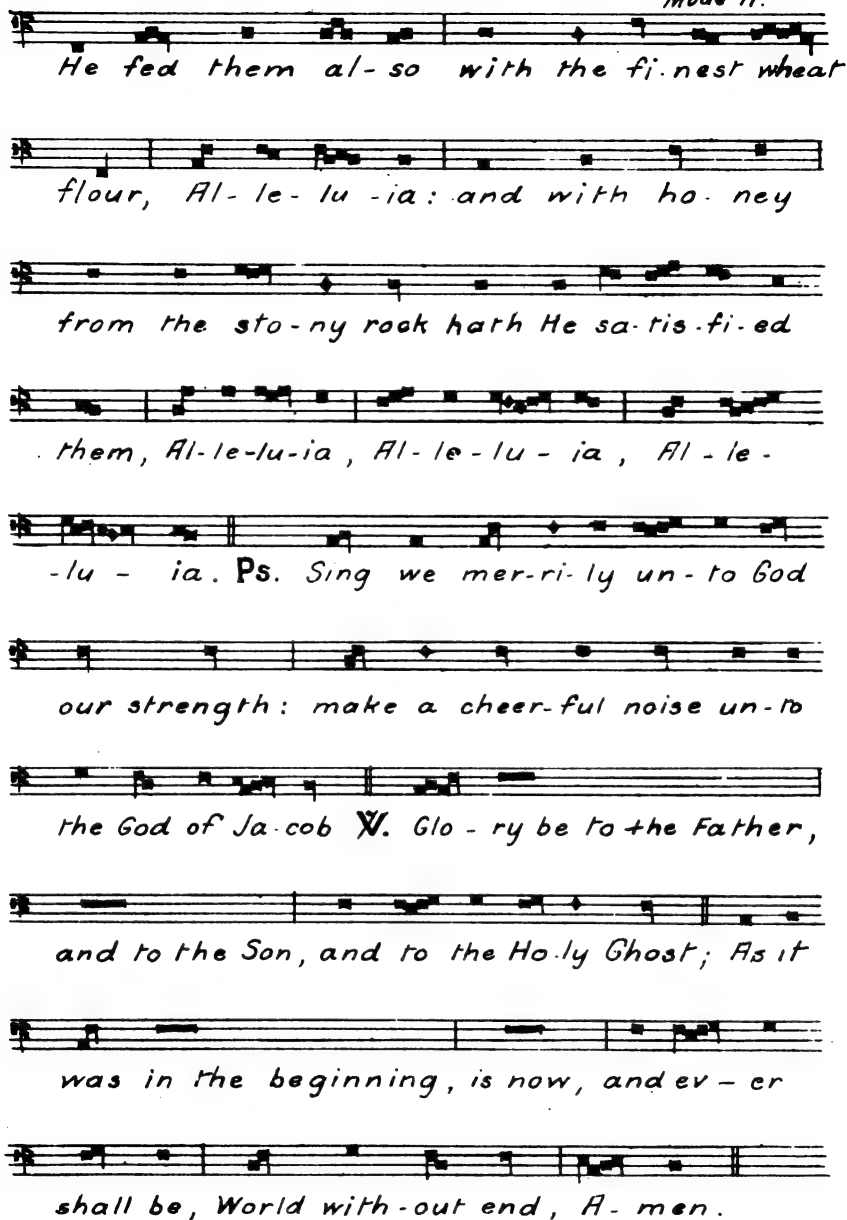 Mode II.
He fed them al-so with the fi-nest wheat
flour, Al-le-lu-ia: and with ho-ney
from the sto-ny rock hath He sa-tis-fi-ed
them, Al-le-lu-ia, Al-le-lu-ia, Al-le-
-lu-ia. Ps. Sing we mer-ri-ly un-to God
our strength: make a cheer-ful noise un-to
the God of Ja-cob ℣. Glo-ry be to the Father,
and to the Son, and to the Ho-ly Ghost; As it
was in the beginning, is now, and ev-er
shall be, World with-out end, A-men.